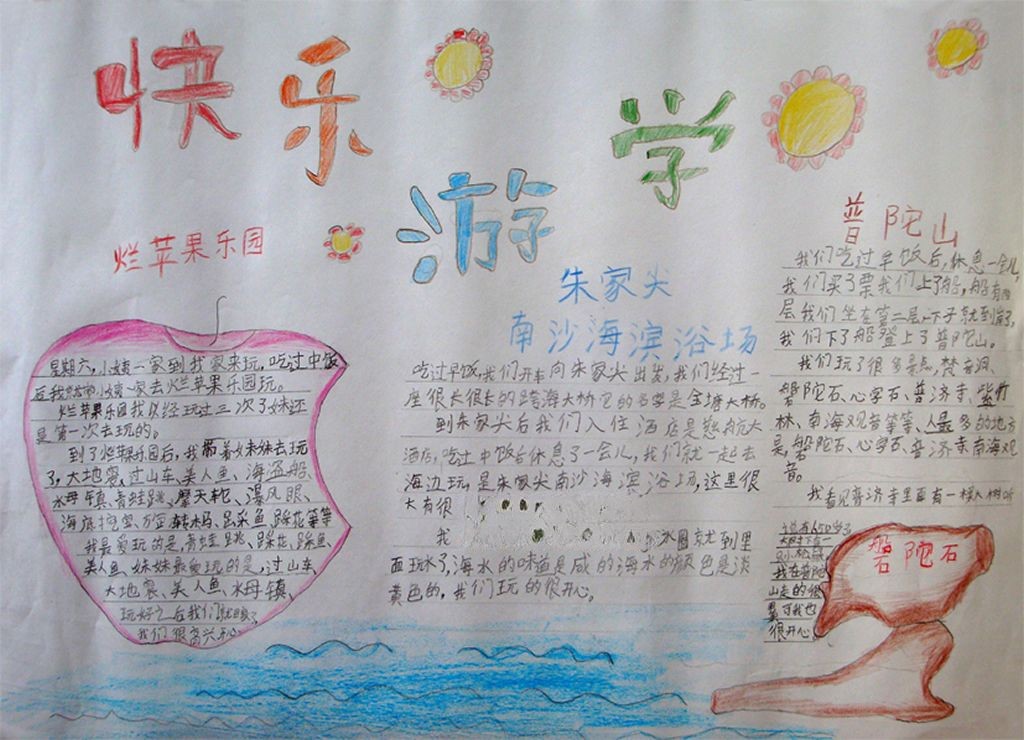 快乐
游学
烂苹果乐园
星期六,小姨一家到我家来玩,吃过中饭
后我们和小姨一家去烂苹果乐园玩。
烂苹果乐园我以经玩过三次了妹还
是第一次去玩的。
到了烂苹果乐园后,我带着妹妹去玩
了,大地震,过山车、美人鱼、海盗船、
水母镇、青蛙跳、摩天轮、瀑风眼、
转木马、踩花等等
我最爱玩的是,青蛙跳、踩花、踩鱼、
美人鱼、妹妹最爱玩的是,过山车、
大地震、美人鱼、水母镇,
玩好之后我们就回家了
我们很高兴
朱家尖
南沙海滨浴场
吃过早饭,我们开车向朱家尖出发,我们经过一
座很长很长的跨海大桥它的名字是金塘大桥。
到朱家尖后我们入住酒店是悠航大
酒店,吃过中饭后休息了一会儿,我们就一起去
海边玩,是朱家尖南沙海滨浴场,这里很
大有很
我 泳圈就到里
面玩水了,海水的味道是咸的海水的颜色是淡
黄色的,我们玩的很开心。
普陀山
我们吃过早饭后,休息一会儿,
我们买了票我们上了船,船有两
层我们坐在第二层一下子就到岸了,
我们下了船登上了普陀山。
我们玩了很多景点,梵音洞、
磐陀石、心字石、普济寺、紫竹
林、南海观音等等、人最多的地方
是,磐陀石、心字石、普济寺南海观
音。
我看见普济寺里面有一棵大树听
我在普陀
山走的很
累可我也
很开心。
磐陀石